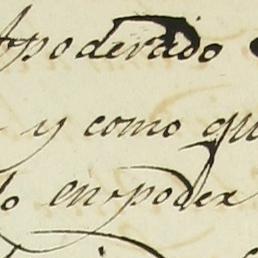 Apoderado
y como qu
do en poder